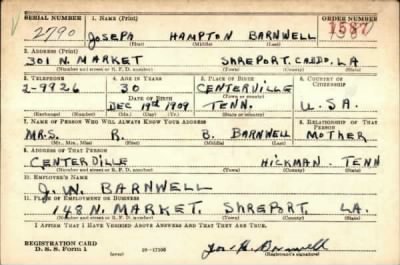 SERIAL NUMBER 1. NAME (Print) ORDER NUMBER
2790 JOSEPH HAMPTON BARNWELL 1587
(First) (Middle) (Last)
2. ADDRESS (Print)
301 N. MARKET SHREPORT. CADDO, LA
(Number and street or R. F. D. number) (Town) (County) (State)
3. TELEPHONE 4. AGE IN YEARS 5. PLACE OF BIRTH 6. COUNTRY OF CITIZENSHIP
2-9926 30 CENTERVILLE
DATE OF BIRTH (Town or county)
DEC 19th 1909 TENN. U.S.A.
(Exchange) (Number) (Mo.) (Day) (Yr.) (State or country)
7. NAME OF PERSON WHO WILL ALWAYS KNOW YOUR ADDRESS 8. RELATIONSHIP OF THAT PERSON
MRS. R. B. BARNWELL MOTHER
(Mr., Mrs., Miss) (First) (Middle) (Last)
9. ADDRESS OF THAT PERSON
CENTERVILLE HICKMAN. TENN
(Number and street or R. F. D. number) (Town) (County) (State)
10. EMPLOYER'S NAME
J. W. BARNWELL
11. PLACE OF EMPLOYMENT OR BUSINESS
148 N. MARKET. SHREPORT. LA.
(Number and street or R. F. D. number) (Town) (County) (State)
I AFFIRM THAT I HAVE VERIFIED ABOVE ANSWERS AND THAT THEY ARE TRUE.
REGISTRATION CARD
D. S. S. Form 1 (over) 16-17105 Jos. H. Barnwell
(Registrant's signature)